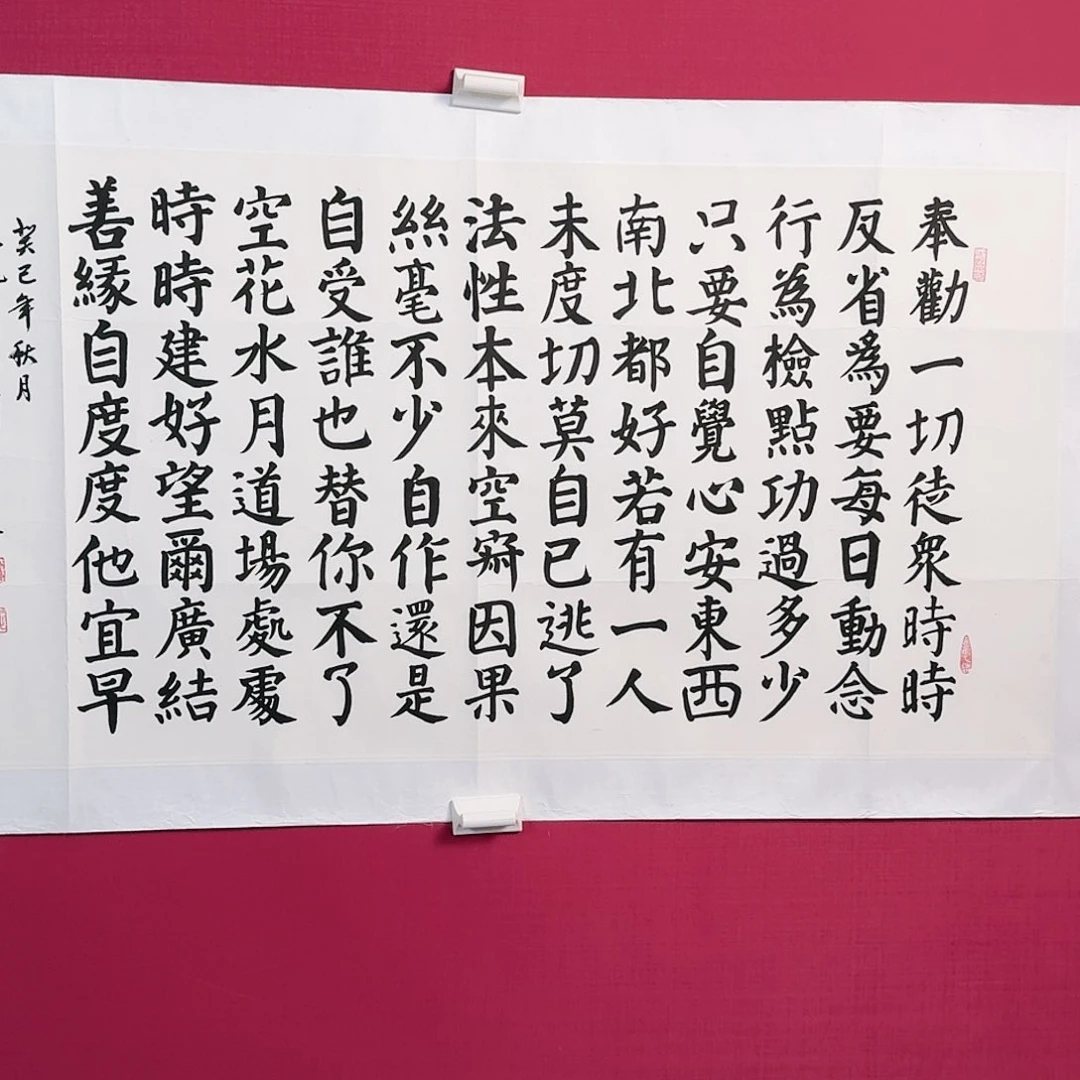 奉勸一切徒衆時時
反省為要每日動念
行為檢點功過多少
只要自覺心安東西
南北都好若有一人
未度切莫自已逃了
法性本來空寂因果
絲毫不少自作還是
自受誰也替你不了
空花水月道場處處
時時建好望爾廣結
善緣自度度他宜早
癸巳年秋月